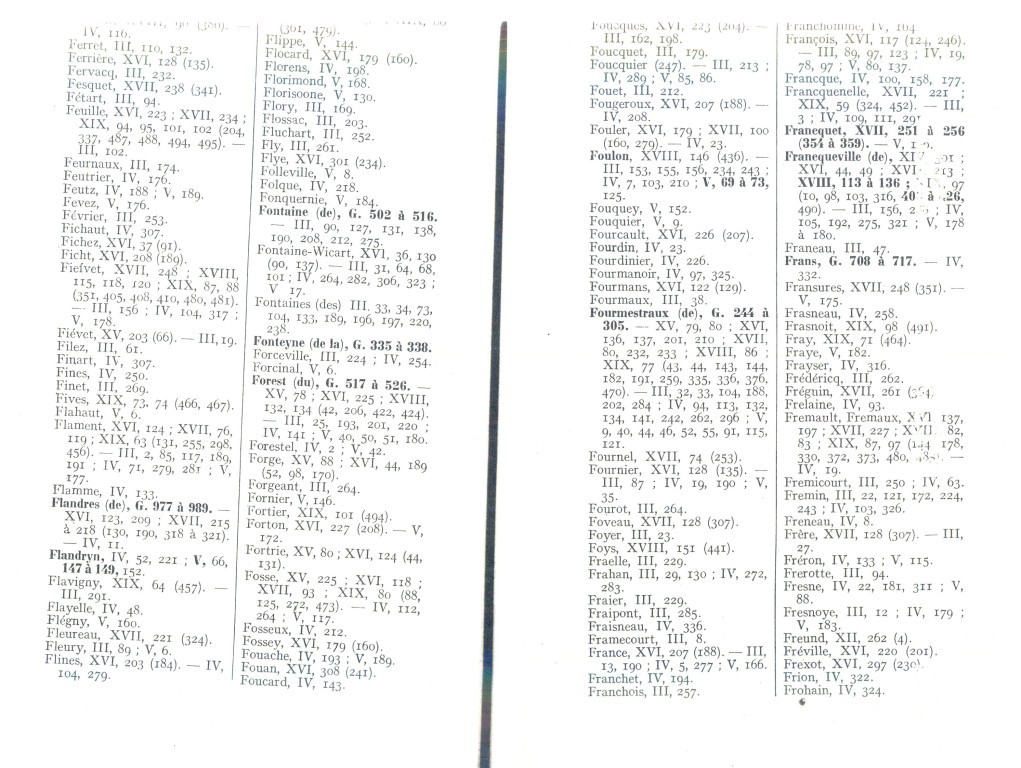 IV, 116.
Ferret, III, 110, 132.
Ferrière, XVI, 128 (135).
Fervacq, III, 232.
Fesquet, XVII, 238 (341).
Fétart, III, 94.
Feuille, XVI, 223 ; XVII, 234 ;
XIX, 94, 95, 101, 102 (204,
337, 487, 488, 494, 495). —
III, 102.
Feurnaux, III, 174.
Feutrier, IV, 176.
Feutz, IV, 188 ; V, 189.
Fevez, V, 176.
Février, III, 253.
Fichaut, IV, 307.
Fichez, XVI, 37 (91).
Ficht, XVI, 208 (189).
Fiefvet, XVII, 248 ; XVIII,
115, 118, 120 ; XIX, 87, 88
(351, 405, 408, 410, 480, 481).
— III, 156 ; IV, 104, 317 ;
V, 178.
Fiévet, XV, 203 (66). — III, 19.
Filez, III, 61.
Finart, IV, 307.
Fines, IV, 250.
Finet, III, 269.
Fives, XIX, 73, 74 (466, 467).
Flahaut, V, 6.
Flament, XVI, 124 ; XVII, 76,
119 ; XIX, 63 (131, 255, 298,
456). — III, 2, 85, 117, 189,
191 ; IV, 71, 279, 281 ; V,
177.
Flamme, IV, 133.
Flandres (de), G. 977 à 989. —
XVI, 123, 209 ; XVII, 215
à 218 (130, 190, 318 à 321).
— IV, 11.
Flandryn, IV, 52, 221 ; V, 66,
147 à 149, 152.
Flavigny, XIX, 64 (457). —
III, 291.
Flayelle, IV, 48.
Flégny, V, 160.
Fleureau, XVII, 221 (324).
Fleury, III, 89 ; V, 6.
Flines, XVI, 203 (184). — IV,
104, 279.
(361, 479).
Flippe, V, 144.
Flocard, XVI, 179 (160).
Florens, IV, 198.
Florimond, V, 168.
Florisoone, V, 130.
Flory, III, 169.
Flossac, III, 203.
Fluchart, III, 252.
Fly, III, 261.
Flye, XVI, 301 (234).
Folleville, V, 8.
Folque, IV, 218.
Fonquernie, V, 184.
Fontaine (de), G. 502 à 516.
— III, 90, 127, 131, 138,
190, 208, 212, 275.
Fontaine-Wicart, XVI, 36, 130
(90, 137). — III, 31, 64, 68,
101 ; IV, 264, 282, 306, 323 ;
V 17.
Fontaines (des) III, 33, 34, 73,
104, 133, 189, 196, 197, 220,
238.
Fonteyne (de la), G. 335 à 338.
Forceville, III, 224 ; IV, 254.
Forcinal, V, 6.
Forest (du), G. 517 à 526. —
XV, 78 ; XVI, 225 ; XVIII,
132, 134 (42, 206, 422, 424).
— III, 25, 193, 201, 220 ;
IV, 141 ; V, 40, 50, 51, 180.
Forestel, IV, 2 ; V, 42.
Forge, XV, 88 ; XVI, 44, 189
(52, 98, 170).
Forgeant, III, 264.
Fornier, V, 146.
Fortier, XIX, 101 (494).
Forton, XVI, 227 (208). — V,
172.
Fortrie, XV, 80 ; XVI, 124 (44,
131).
Fosse, XV, 225 ; XVI, 118 ;
XVII, 93 ; XIX, 80 (88,
125, 272, 473). — IV, 112,
264 ; V, 117.
Fosseux, IV, 212.
Fossey, XVI, 179 (160).
Fouache, IV, 193 ; V, 189.
Fouan, XVI, 308 (241).
Foucard, IV, 143.
Foucques, XVI, 223 (204). —
III, 162, 198.
Foucquet, III, 179.
Foucquier (247). — III, 213 ;
IV, 289 ; V, 85, 86.
Fouet, III, 212.
Fougeroux, XVI, 207 (188). —
IV, 208.
Fouler, XVI, 179 ; XVII, 100
(160, 279). — IV, 23.
Foulon, XVIII, 146 (436). —
III, 153, 155, 156, 234, 243 ;
IV, 7, 103, 210 ; V, 69 à 73,
125.
Fouquey, V, 152.
Fouquier, V, 9.
Fourcault, XVI, 226 (207).
Fourdin, IV, 23.
Fourdinier, IV, 226.
Fourmanoir, IV, 97, 325.
Fourmans, XVI, 122 (129).
Fourmaux, III, 38.
Fourmestraux (de), G. 244 à
305. — XV, 79, 80 ; XVI,
136, 137, 201, 210 ; XVII,
80, 232, 233 ; XVIII, 86 ;
XIX, 77 (43, 44, 143, 144,
182, 191, 259, 335, 336, 376,
470). — III, 32, 33, 104, 188,
202, 284 ; IV, 94, 113, 132,
134, 141, 242, 262, 296 ; V,
9, 40, 44, 46, 52, 55, 91, 115,
121.
Fournel, XVII, 74 (253).
Fournier, XVI, 128 (135). —
III, 87 ; IV, 19, 190 ; V,
35.
Fourot, III, 264.
Foveau, XVII, 128 (307).
Foyer, III, 23.
Foys, XVIII, 151 (441).
Fraelle, III, 229.
Frahan, III, 29, 130 ; IV, 272,
283.
Fraier, III, 229.
Fraipont, III, 285.
Fraisneau, IV, 336.
Framecourt, III, 8.
France, XVI, 207 (188). — III,
13, 190 ; IV, 5, 277 ; V, 166.
Franchet, IV, 194.
Franchois, III, 257.
Franchomme, IV, 164
François, XVI, 117 (124, 246).
— III, 89, 97, 123 ; IV, 19,
78, 97 ; V, 80, 137.
Francque, IV, 100, 158, 177.
Francquenelle, XVII, 221 ;
XIX, 59 (324, 452). — III,
3 ; IV, 109, 111, 29
Franequet, XVII, 251 à 256
(354 à 359). — V,
Franequeville (de), 301 ;
XVI, 44, 49 ; XVI 213 ;
XVIII, 113 à 136 ; 97
(10, 98, 103, 316,
490). — III, 156, ; IV,
105, 192, 275, 321 ; V, 178
à 180.
Franeau, III, 47.
Frans, G. 708 à 717. — IV,
332.
Fransures, XVII, 248 (351). —
V, 175.
Frasneau, IV, 258.
Frasnoit, XIX, 98 (491).
Fray, XIX, 71 (464).
Fraye, V, 182.
Frayser, IV, 316.
Frédéricq, III, 262.
Fréguin, XVII, 261
Frelaine, IV, 93.
Fremault, Fremaux, XVI 137,
197 ; XVII, 227 ; 82,
83 ; XIX, 87, 97 ( 178,
330, 372, 373, 480, —
IV, 19.
Fremicourt, III, 250 ; IV, 63.
Fremin, III, 22, 121, 172, 224,
243 ; IV, 103, 326.
Freneau, IV, 8.
Frère, XVII, 128 (307). — III,
27.
Fréron, IV, 133 ; V, 115.
Frerotte, III, 94.
Fresne, IV, 22, 181, 311 ; V,
88.
Fresnoye, III, 12 ; IV, 179 ;
V, 183.
Freund, XII, 262 (4).
Fréville, XVI, 220 (201).
Frexot, XVI, 297 (230).
Frion, IV, 322.
Frohain, IV, 324.